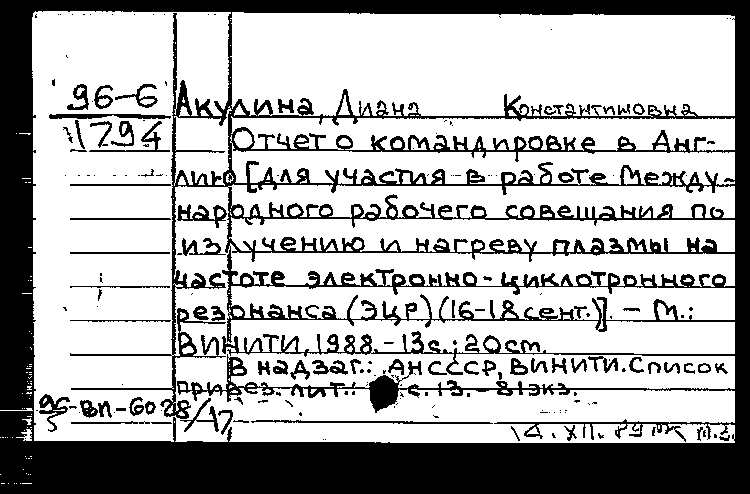 96-6 Акулина, Диана Константиновна
11794 Отчет о командировке в Анг-
лию [для участия в работе Между-
народного рабочего совещания по
излучению и нагреву плазмы на
частоте электронно-циклотронного
резонанса (ЭЦР) (16-18 сент.)]. - М.:
ВИНИТИ, 1988. - 13с.; 20cm.
В надзаг.: АНСССР, ВИНИТИ. Список
прирез. лит.: с. 13. - 81экз.
96-ВП-6028/17
5
14. XII. 89